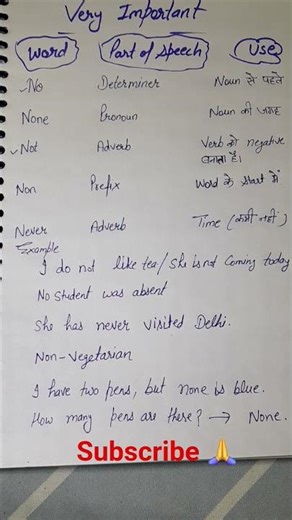 Very Important
Word Part of Speech Use
No Determiner Noun से पहले
None Pronoun Noun की जगह
Not Adverb Verb को negative
बनाता है।
Non Prefix Word के start में
Never Adverb Time (कभी नहीं)
Example
I do not like tea/She is not coming today
No student was absent
She has never visited Delhi.
Non-Vegetarian
I have two pens, but none is blue.
How many pens are there? → None.
Subscribe 🙏